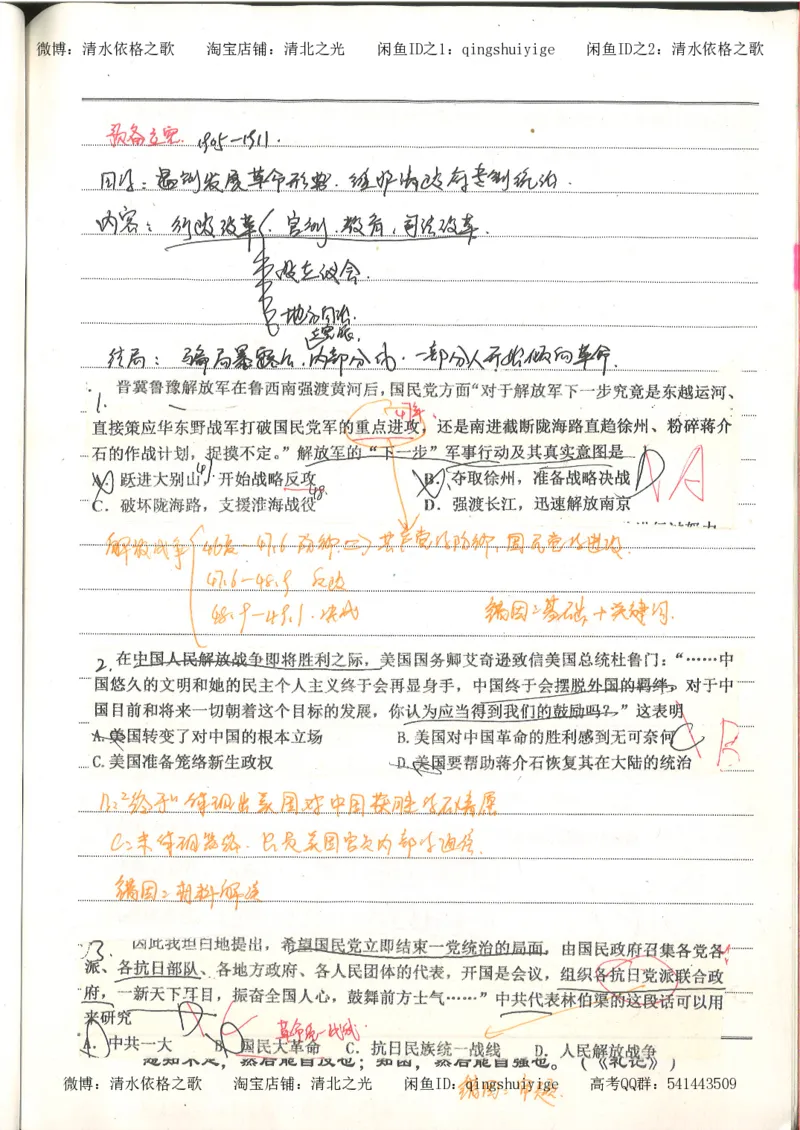 微博：清水依格之歌 淘宝店铺：清北之光 闲鱼ID之1：qingshuiyige 闲鱼ID之2：清水依格之歌
预备立宪 1905—1911.
目的：遏制发展革命形势．维护清政府专制统治．
内容：行政改革．官制．教育，司法改革．
设立议会．
地方自治．
立宪派．
结局：骗局暴露后，内部分化．一部分人开始倾向革命．
1. 晋冀鲁豫解放军在鲁西南强渡黄河后，国民党方面“对于解放军下一步究竟是东越运河、
47年．
直接策应华东野战军打破国民党军的重点进攻，还是南进截断陇海路直趋徐州、粉碎蒋介
石的作战计划，捉摸不定。”解放军的“下一步”军事行动及其真实意图是
A. 跃进大别山，开始战略反攻 B. 夺取徐州，准备战略决战 A
C. 破坏陇海路，支援淮海战役 48. D. 强渡长江，迅速解放南京
解放战争 46夏—47.6 防御 => 共产党的防御，国民党的进攻．
47.6—48.9 反攻
48.9—49.1．决战 错因：基础＋关键词．
2. 在中国人民解放战争即将胜利之际，美国国务卿艾奇逊致信美国总统杜鲁门：“……中
国悠久的文明和她的民主个人主义终于会再显身手，中国终于会摆脱外国的羁绊。对于中
国目前和将来一切朝着这个目标的发展，你认为应当得到我们的鼓励吗？”这表明
A. 美国转变了对中国的根本立场 B. 美国对中国革命的胜利感到无可奈何 C B
C. 美国准备笼络新生政权 D. 美国要帮助蒋介石恢复其在大陆的统治
B：“终于”体现出美国对中国获胜的不情愿
C：未体现笼络．只是美国官员内部的通信．
错因：材料解读
3. 因此我坦白地提出，希望国民党立即结束一党统治的局面，由国民政府召集各党各
派、各抗日部队、各地方政府、各人民团体的代表，开国是会议，组织各抗日党派联合政
府，一新天下耳目，振奋全国人心，鼓舞前方士气……”中共代表林伯渠的这段话可以用
来研究 D C 革命统一战线．
A. 中共一大 B. 国民大革命 C. 抗日民族统一战线 D. 人民解放战争
然后能自反也；知困，然后能自强也。（《礼记》）
微博：清水依格之歌 淘宝店铺：清北之光 闲鱼ID：qingshuiyige 高考QQ群：541443509
错因：审题．